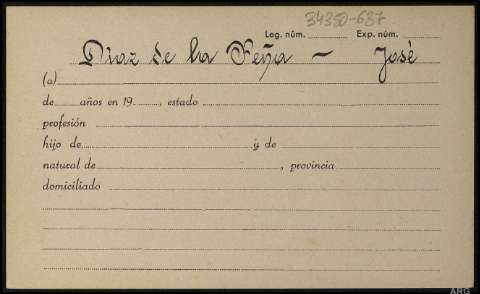 34350-637
Leg. núm. Exp. núm.
Diaz de la Peña — José
(a)
de años en 19 , estado
profesión
hijo de y de
natural de , provincia
domiciliado
ARG